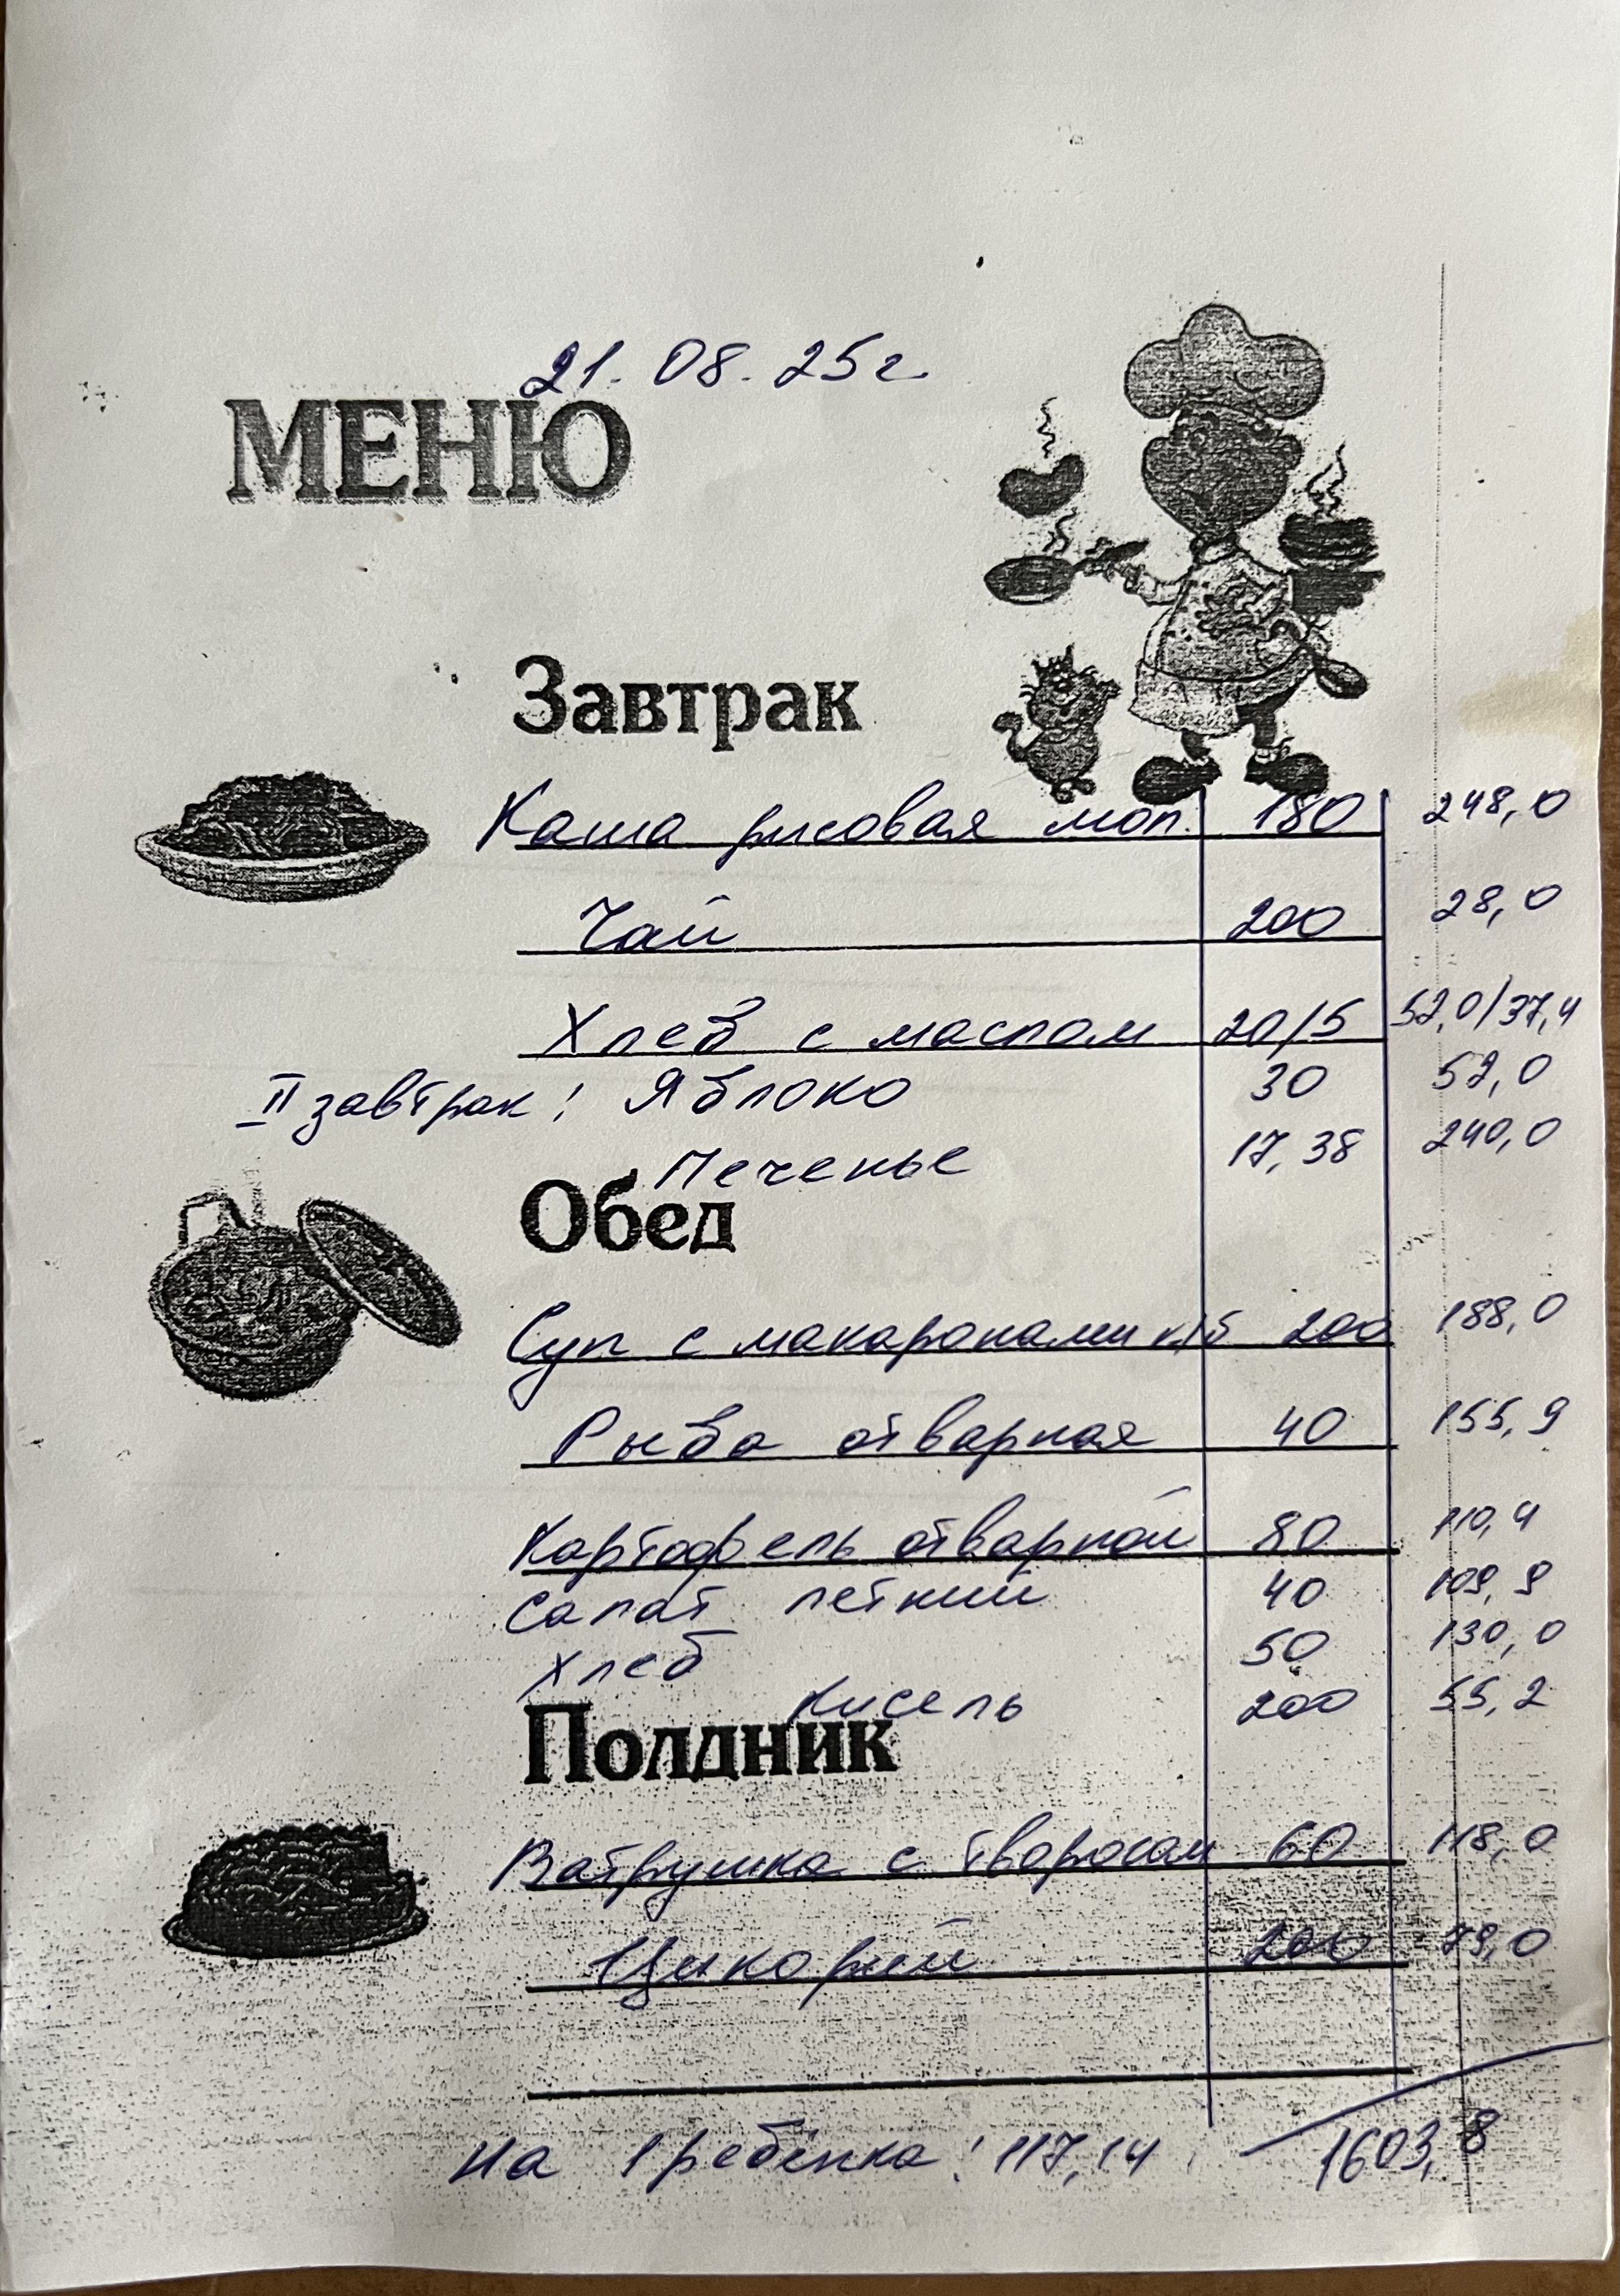 21.08.25г.
МЕНЮ
Завтрак
Каша рисовая мол. 180 248,0
Чай 200 28,0
Хлеб с маслом 20/5 52,0/37,4
II завтрак: Яблоко 30 52,0
Печенье 17,38 240,0
Обед
Суп с макаронами к/б 200 188,0
Рыба отварная 40 155,9
Картофель отварной 80 110,4
Салат летний 40 109,9
Хлеб 50 130,0
Кисель 200 55,2
Полдник
Ватрушка с творогом 60 118,0
Цикорий 200 79,0
На 1 ребёнка: 117,14 1603,8